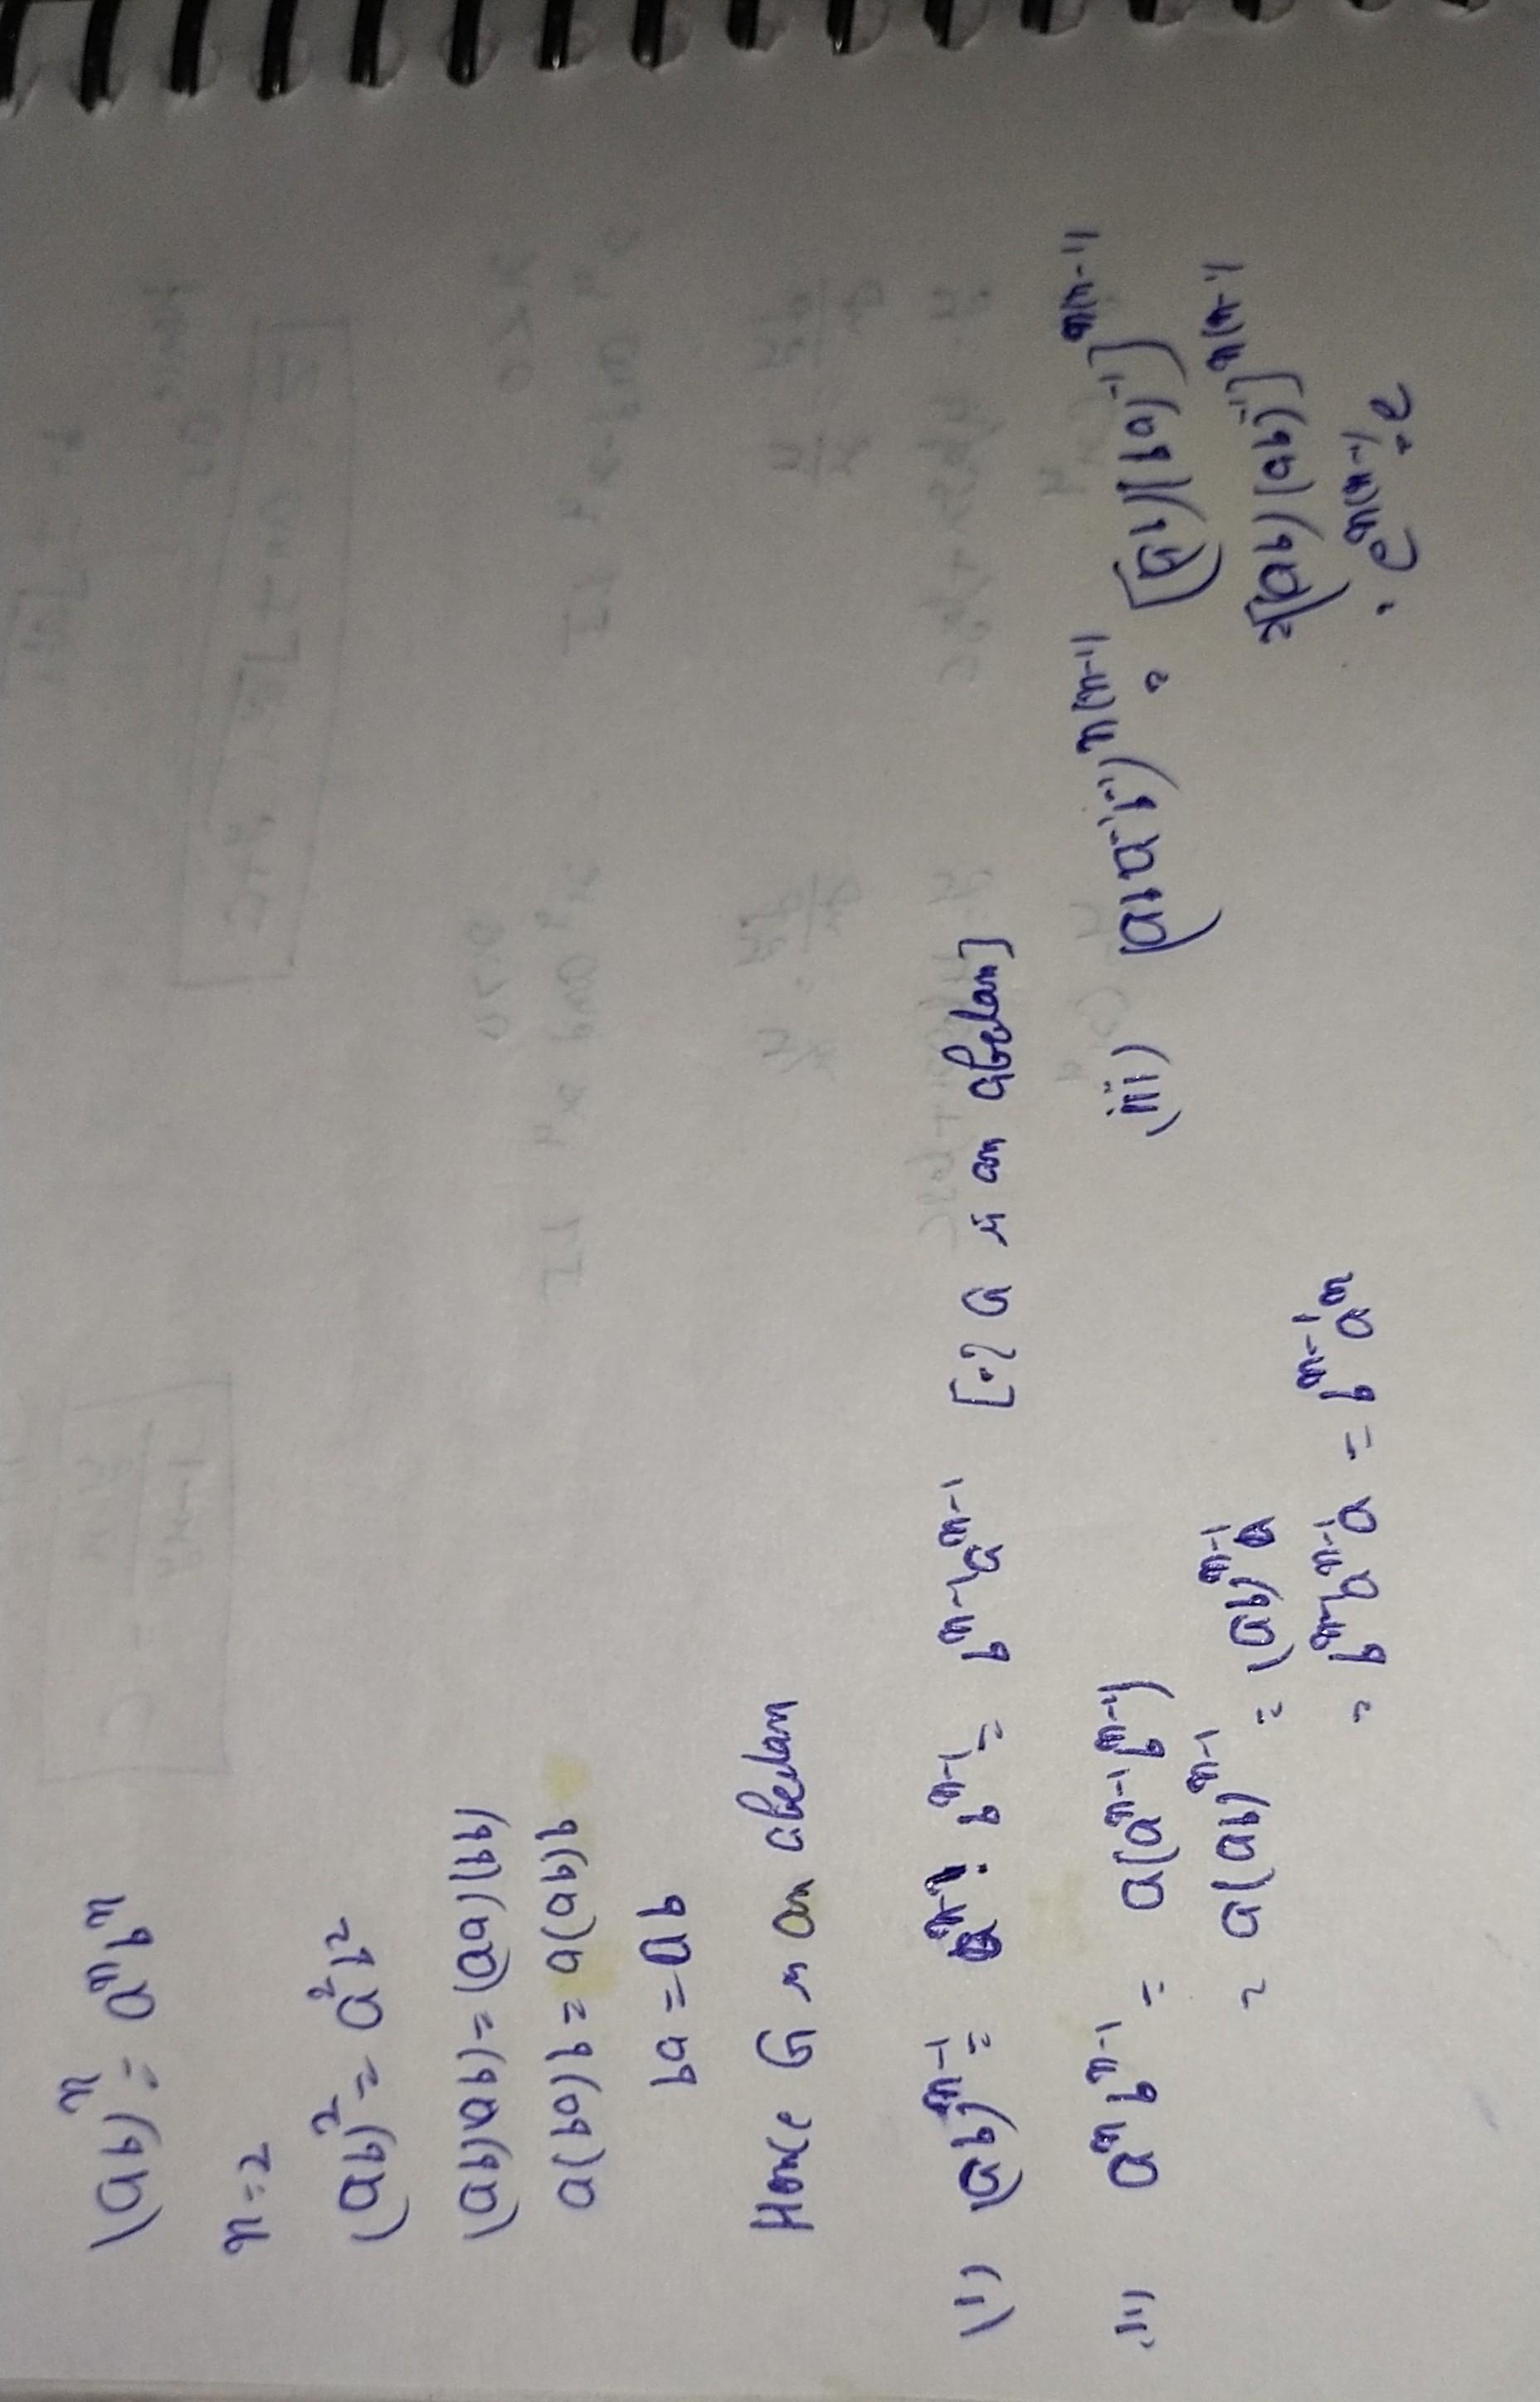 (ab)ⁿ = aⁿbⁿ
n=2
(ab)² = a²b²
(ab)(ab) = (aa)(bb)
a(ba)b = a(ab)b
ba = ab
Hence G is an abelian
(i) (ab)ⁿ⁻¹ = aⁿ⁻¹ bⁿ⁻¹ = bⁿ⁻¹aⁿ⁻¹ [∵ G is an abelian]
(ii) aⁿbⁿ⁻¹ = a(aⁿ⁻¹bⁿ⁻¹)
= a(ab)ⁿ⁻¹ = (ab)ⁿ⁻¹a
= bⁿ⁻¹aⁿ⁻¹a = bⁿ⁻¹aⁿ
(iii) (aba⁻¹b⁻¹)ⁿ⁽ⁿ⁻¹⁾ = [(ab)(ba)⁻¹]ⁿ⁽ⁿ⁻¹⁾
= [(ab)(ab)⁻¹]ⁿ⁽ⁿ⁻¹⁾
= eⁿ⁽ⁿ⁻¹⁾ = e